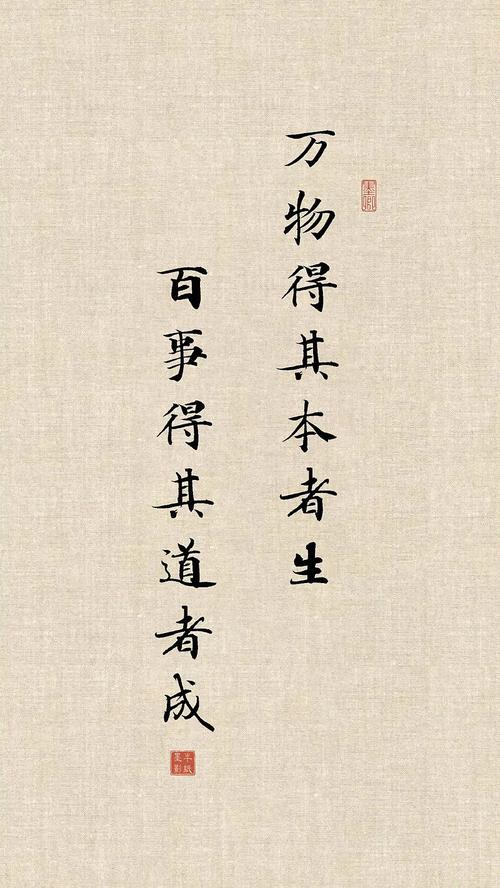 万物得其本者生
百事得其道者成